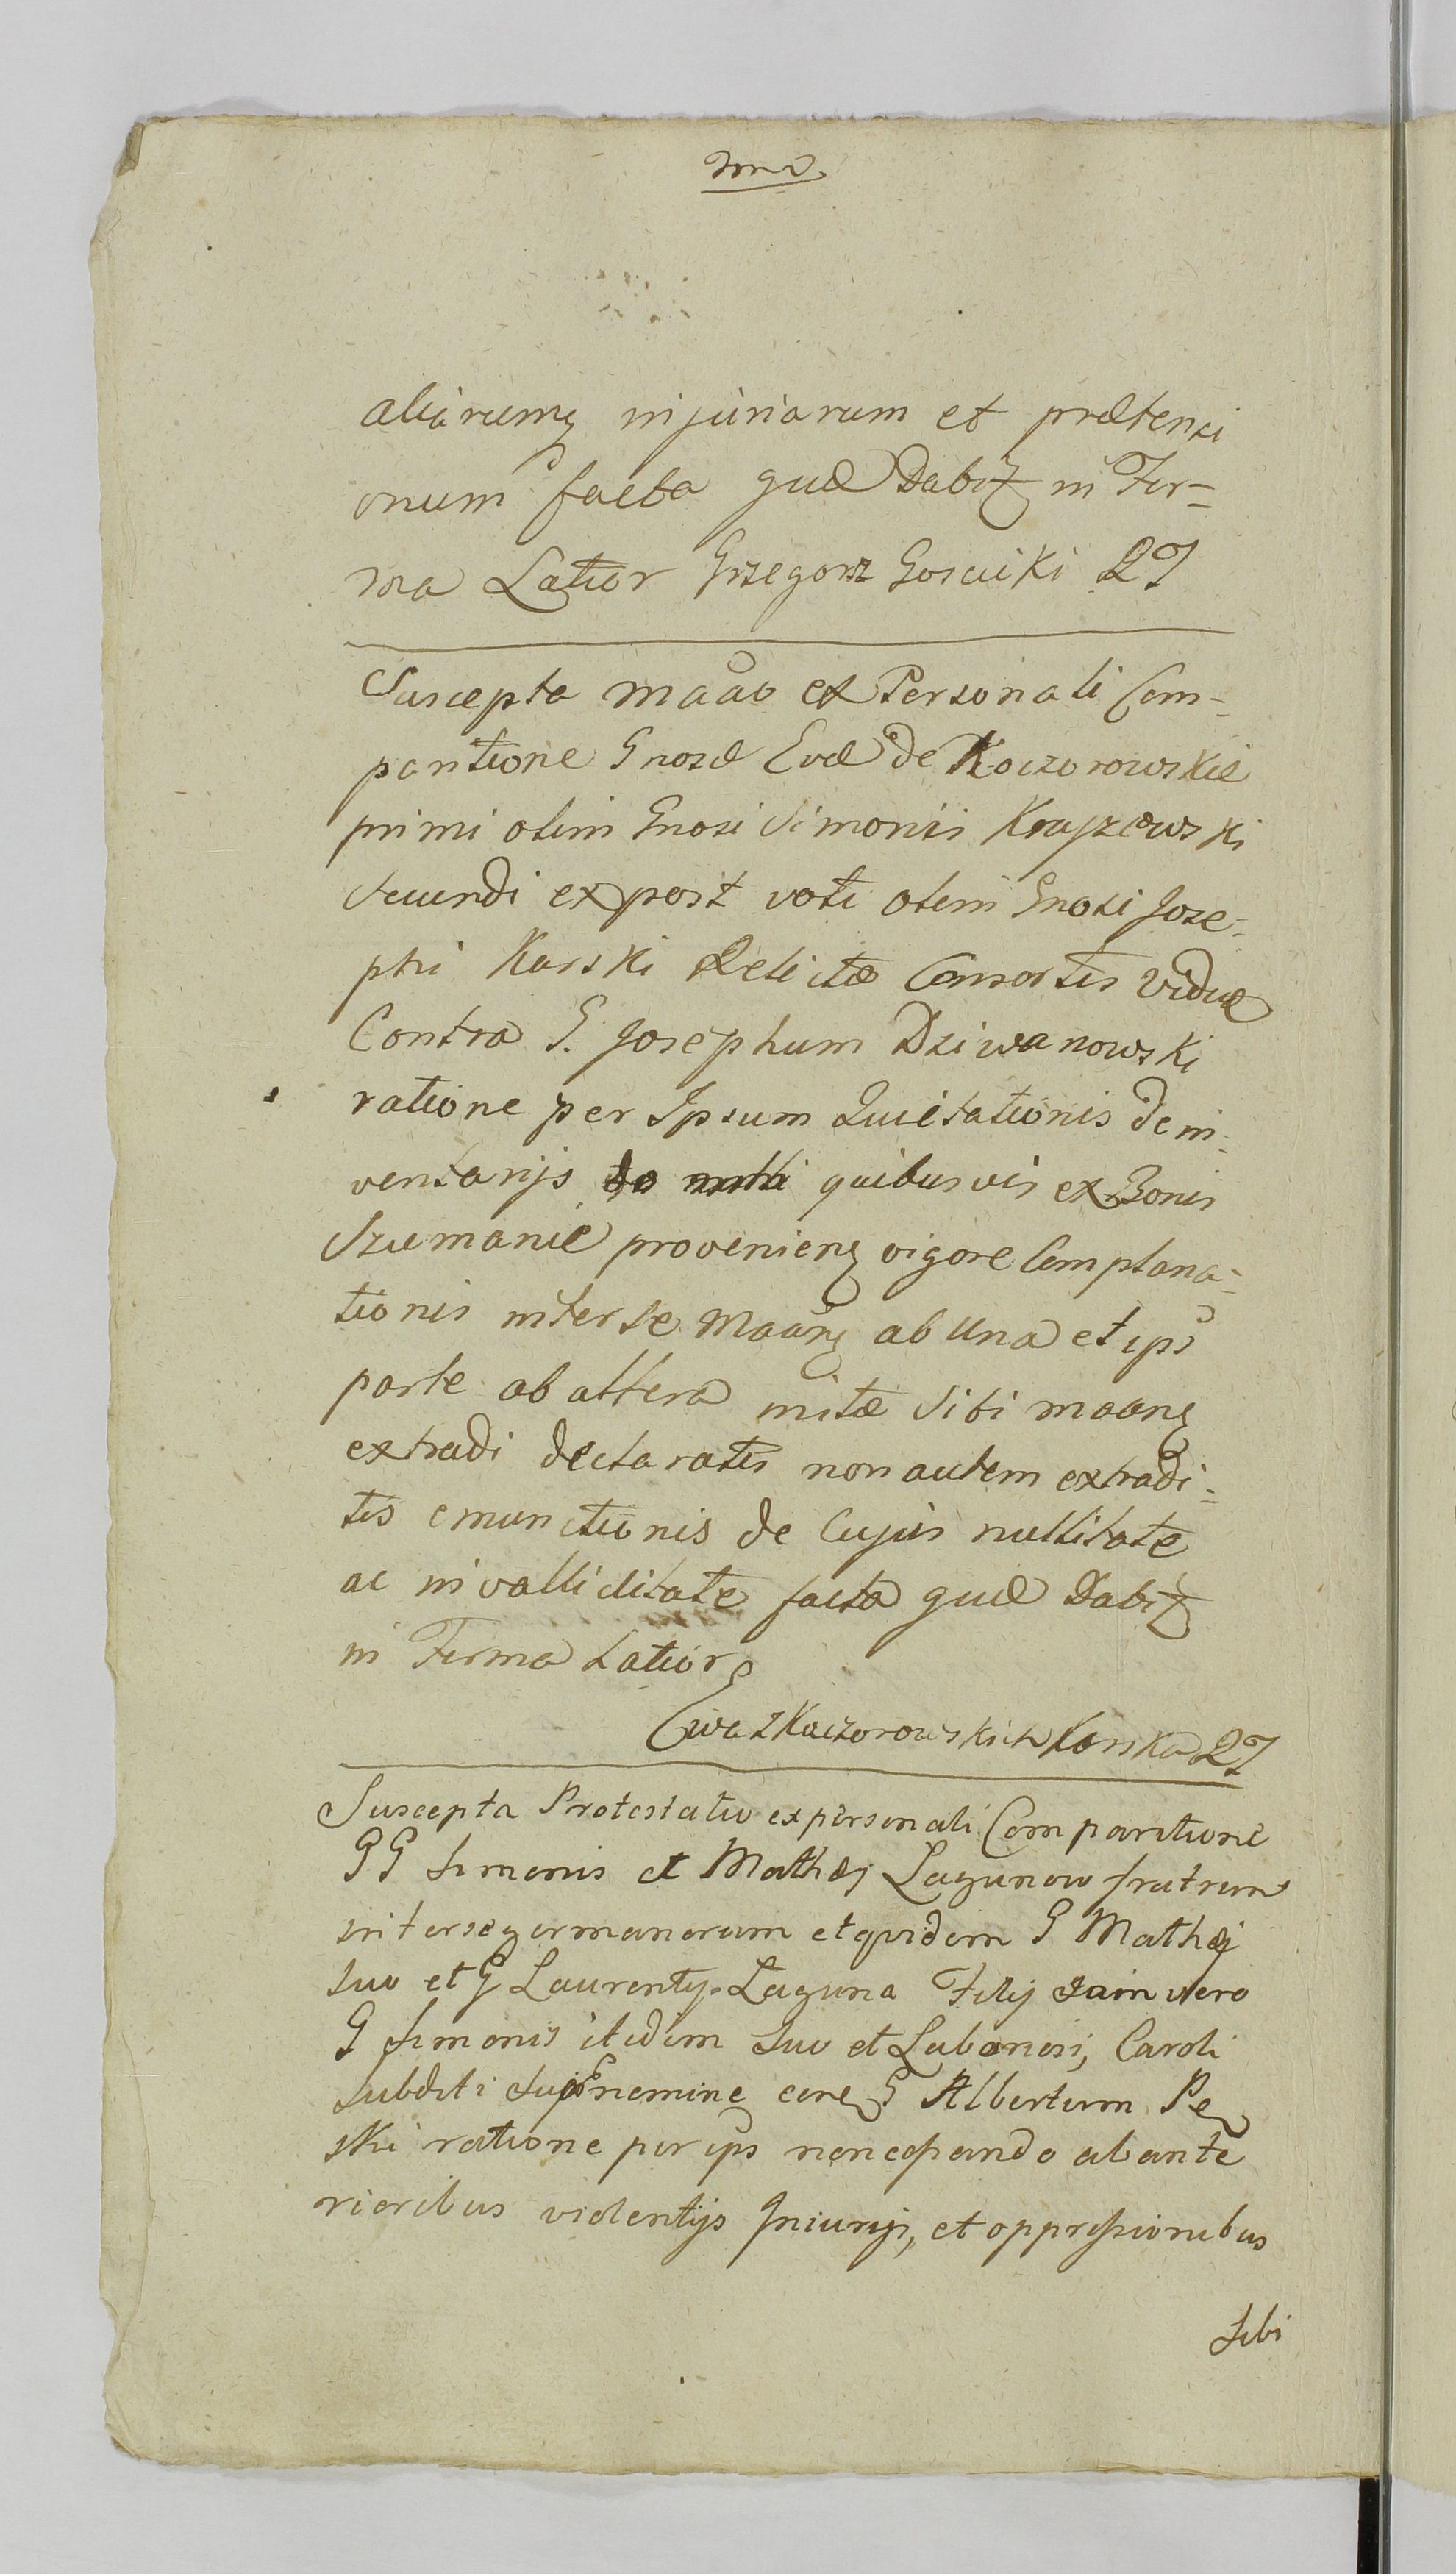 aliarumq injuriarum et prætensi
onum facta quæ Dabit in For=
ma Latior Grzegorz Goscicki QJ
Suscepta maão ex Personali Com=
paritione Gnosæ Evæ de Kaczorowskie
primi olim Gnosi Simonis Krajzewski
secundi expost voti olim Gnosi Jose=
phi Karski Relictæ Consortis Viduæ
Contra G. Josephum Dziwanowski
ratione per Ipsum Quietationis de in=
ventarijs quibusvis ex Bonis
Szumanie provenienq vigore Complana=
tionis inter se Maanq ab Una et ips
parte ab altera initæ Sibi maanq
extradi declaratis non autem extradi=
tis emunctionis de Cujus nullitate
ac invalliditate facta quæ Dabit
in Forma Latior
Ewa z Kaczorowskich Karska QJ
Suscepta Protestatio ex personali Comparitione
GG Simonis et Mathæj Lagunow fratrum
inter se germanorum et quidem G Mathæj
suo et G Laurentij Laguna Filij Jam vero
G Simonis itidem suo et Laboriosi, Caroli
subditi sui nomine coneq G Albertum Pę
ski ratione per ips non cessando ab ante
rioribus violentijs Iniurijs, et oppressionibus
sibi